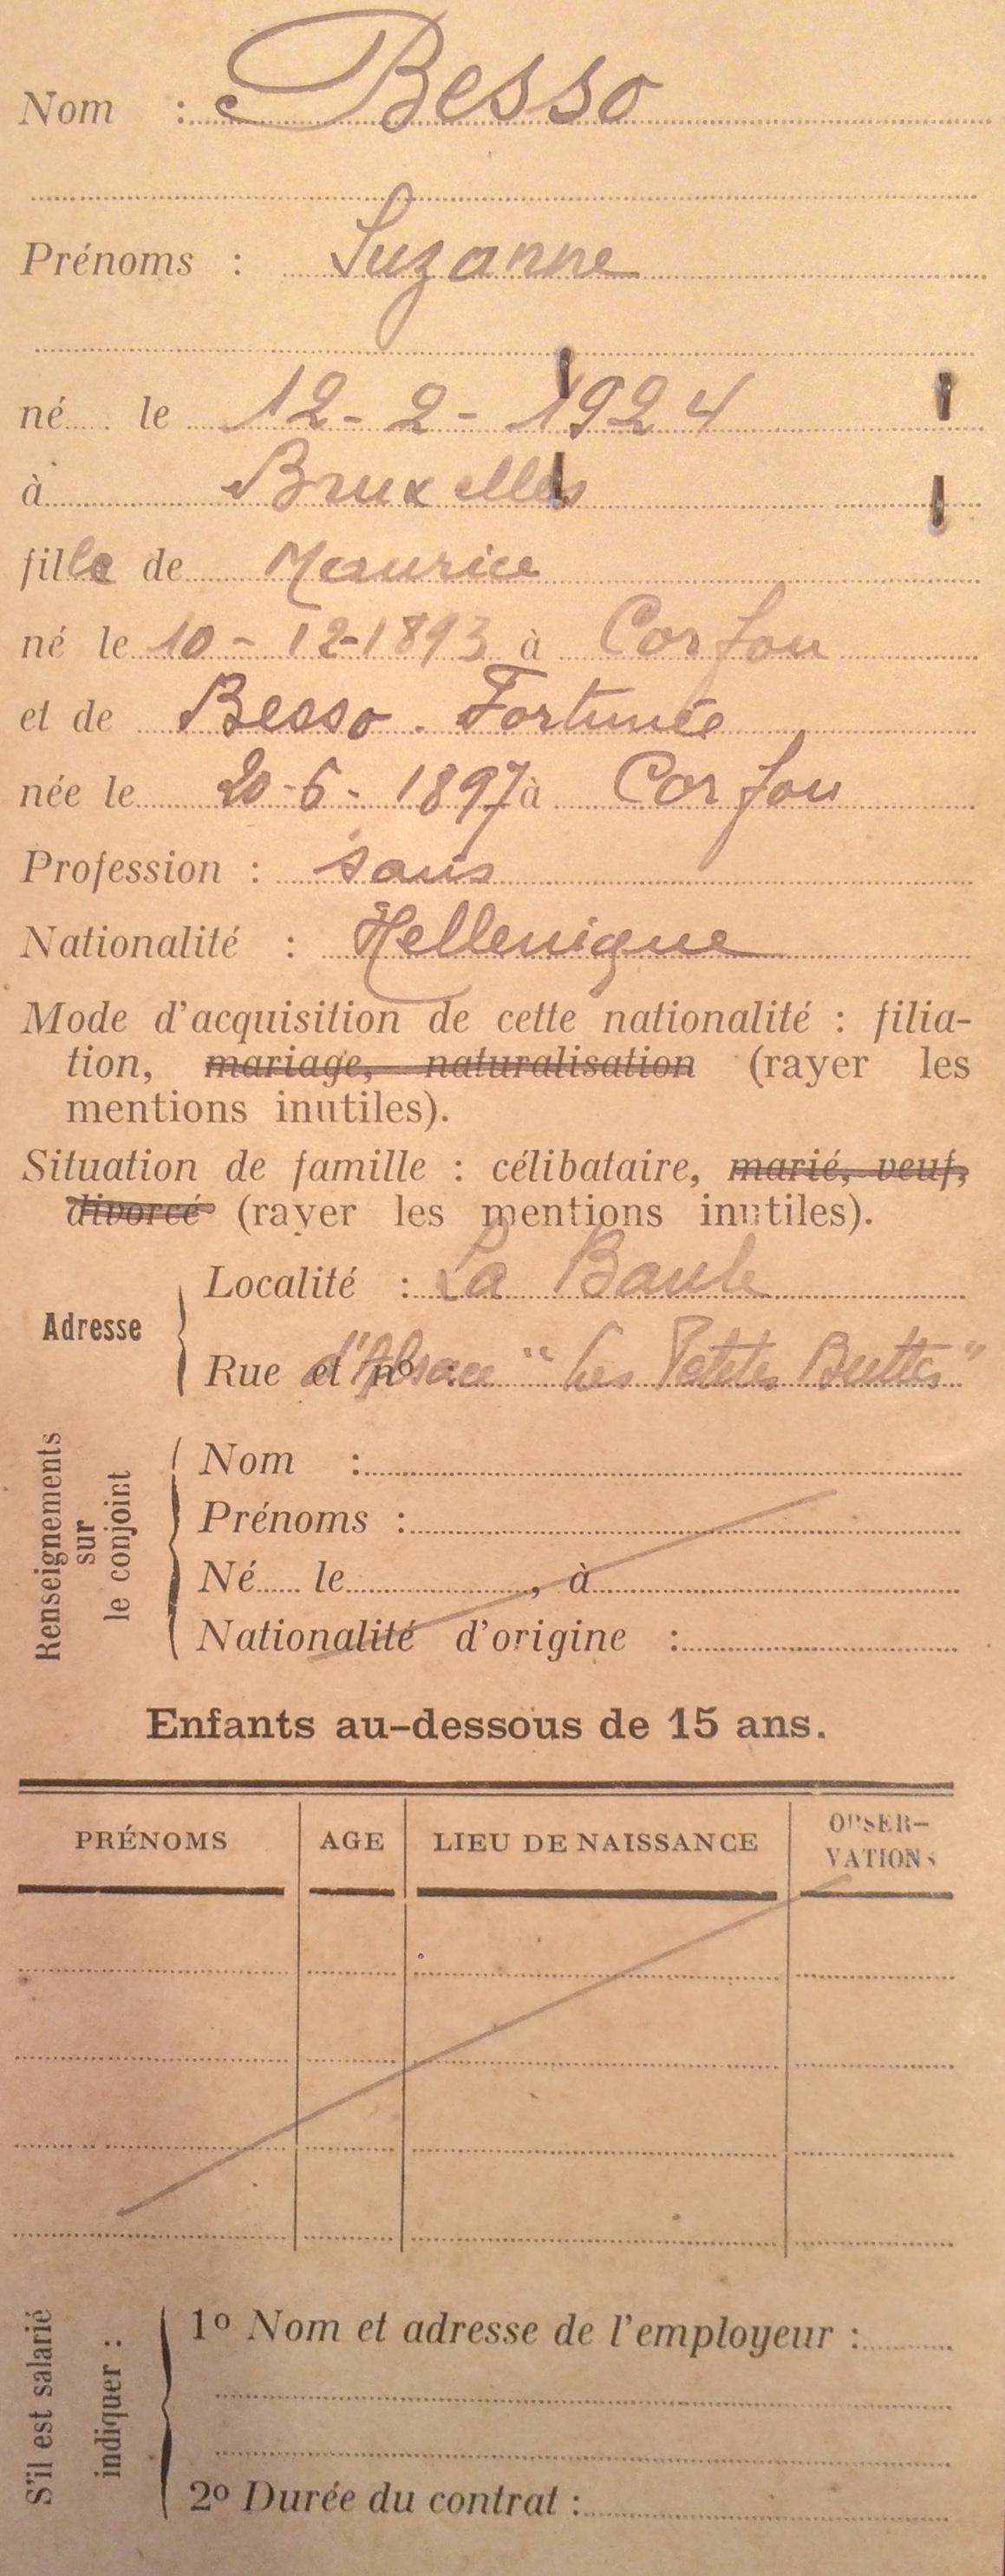 Nom : Besso
Prénoms : Suzanne
né le 12-2-1924
à Bruxelles
fille de Maurice
né le 10-12-1893 à Corfou
et de Besso. Fortunée
née le 20-6-1897 à Corfou
Profession : sans
Nationalité : Hellenique
Mode d'acquisition de cette nationalité : filia-
tion, mariage, naturalisation (rayer les
mentions inutiles).
Situation de famille : célibataire, marié, veuf,
divorcé (rayer les mentions inutiles).
Adresse
Localité : La Baule
Rue et nº d'Alsace "Les Petites Buttes"
Renseignements
sur
le conjoint
Nom :
Prénoms :
Né le , à
Nationalité d'origine :
Enfants au-dessous de 15 ans.
PRÉNOMS AGE LIEU DE NAISSANCE OBSER-
VATIONS
S'il est salarié
indiquer :
1º Nom et adresse de l'employeur :
2º Durée du contrat :